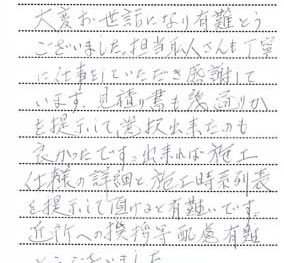 大変お世話になり有難とう
ございました。担当職人さんも丁寧
に仕事をしていただき感謝して
います。見積り書も幾通りか
を提示して、選択出来たのも
良かったです。出来れば施工
仕様の詳細と施工時系列表
を提示して頂けると有難いです。
近所への挨拶等配慮有難
とうございました